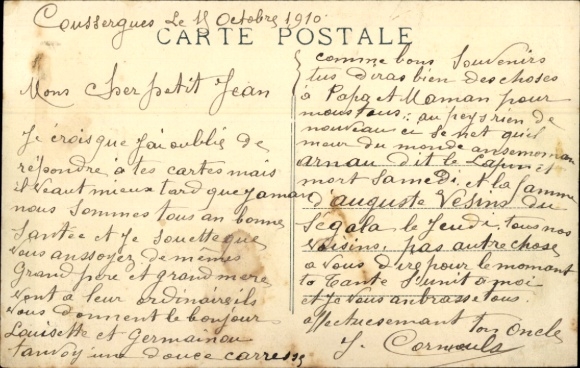 Coussergues Le 11 Octobre 1910
CARTE POSTALE
Mons Cher petit Jean
Je crois que J'ai oublié de
répondre à tes cartes mais
il veaut mieux tard que Jamais
nous sommes tous an bonne
santée et Je souette que
vous anssoyez de mêmes
Grand père et grand mere
vont a leur ordinaire ils
vous donnent le bonjour
Louisette et Germainou
tanvoy une douce carresse
comme bons souvenirs
tus diras bien des choses
à Papa et Maman pour
mous tous; au pays rien de
nouveau ci se n'et qu'il
meur du monde
arnau dit le Lapin et
mort Samedi, et la famme
d'auguste Vésins du
Ségala le Jeudi, tous nos
voisins, pas autre chose
à vous dire pour le momant
ta Tante s'unit à moi
et Je vous anbrasse tous.
affectuesemant ton Oncle
J. Cormouls